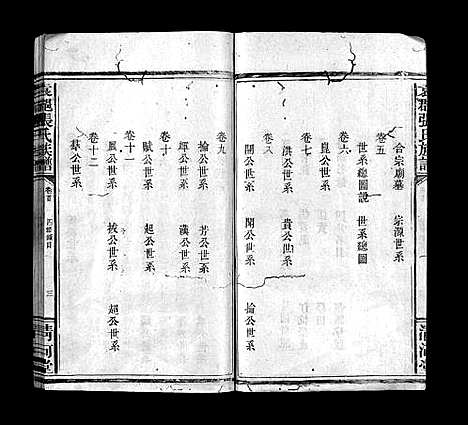 合宗廟墓 宗源世系
卷五
世系總圖說 世系總圖
卷六
崑公世系
卷七
洪公世系 貴公世系
卷八
開公世系 聞公世系 掄公世系
卷九
掄公世系 芳公世系
暉公世系 漢公世系
卷十
賦公世系 超公世系
卷十一
鳳公世系 拔公世系
卷十二
公世系
張氏族譜
卷首
三
清河堂